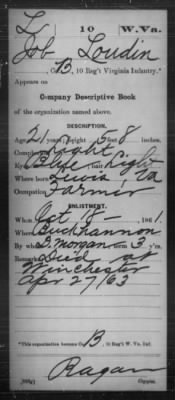 L 10 W.Va.
Job Loudin
, Co. B, 10 Reg't Virginia Infantry.*
Appears on
Company Descriptive Book
of the organization named above.
DESCRIPTION.
Age 21 years; height 5 feet 8 inches.
Complexion Light
Eyes Blue ; hair Light
Where born Lewis, Va
Occupation Farmer
ENLISTMENT.
When Oct 18 , 1861.
Where Buckhannon
By D. Morgan term 3 y'rs.
Remarks: Died at
Winchester
Apr 27/63
*This organization became Co. B, 10 Reg't W. Va. Inf.
Ragan
Copyist.